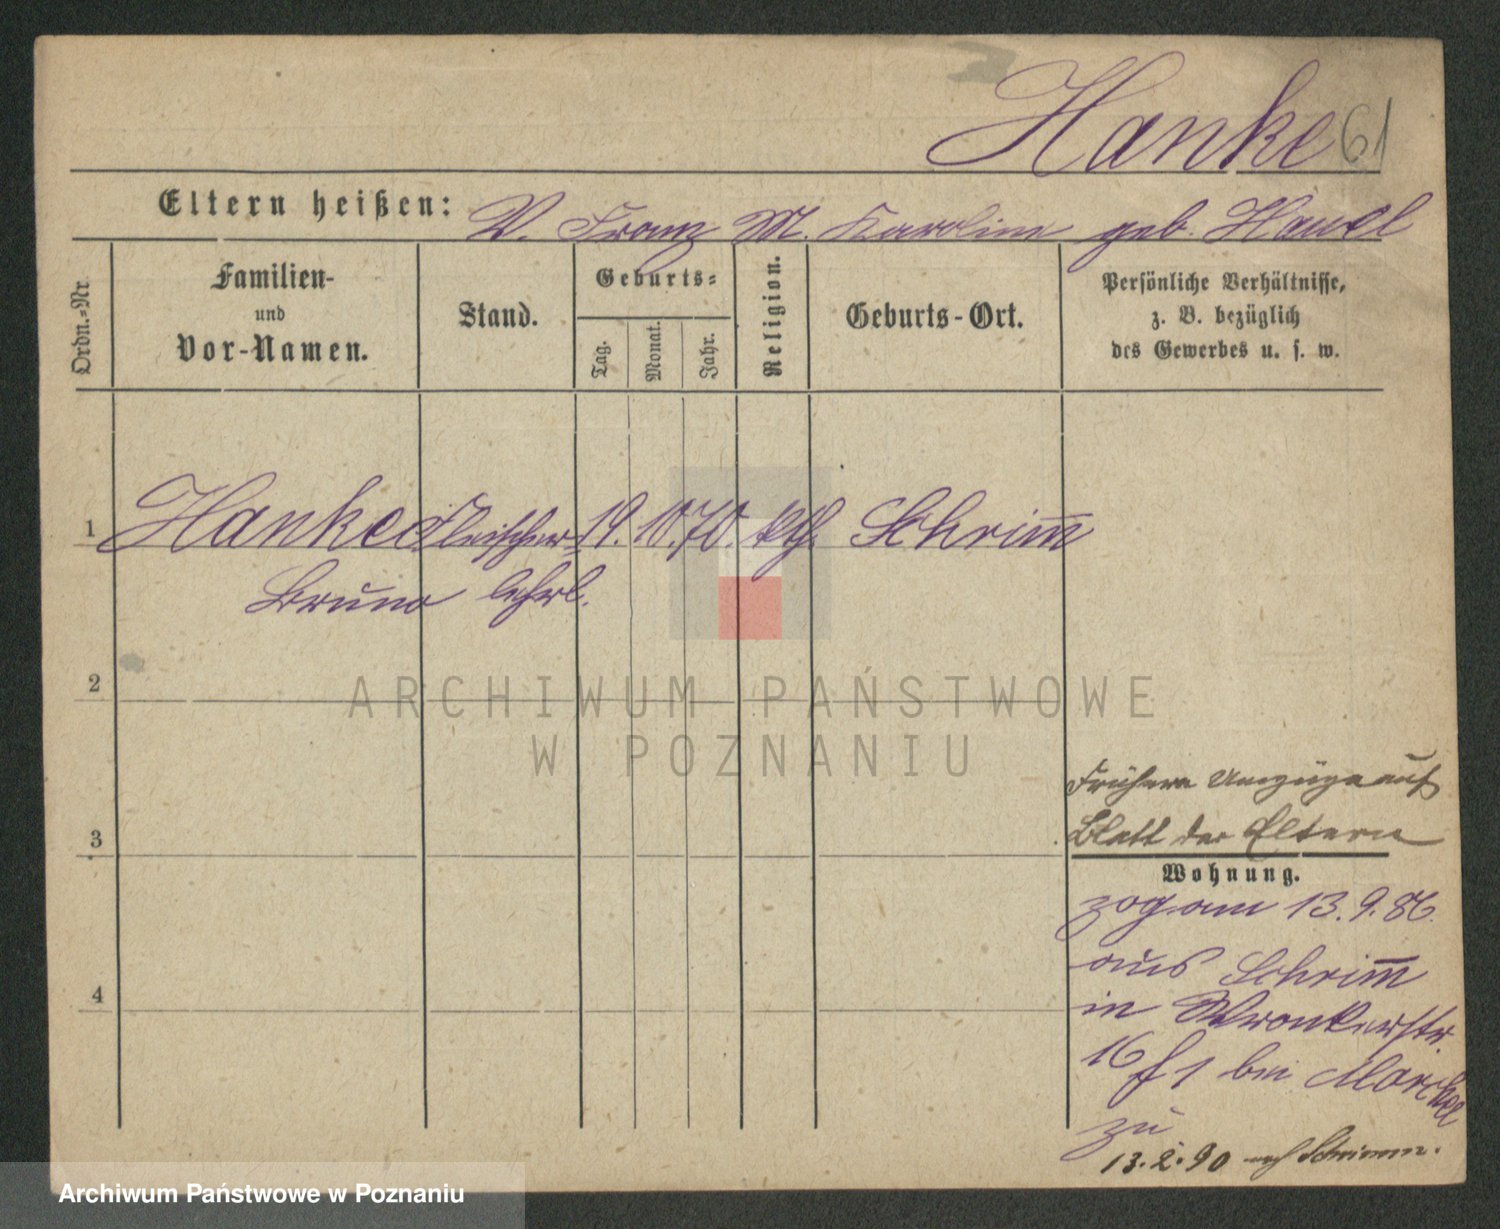 Hanke 61
Eltern heißen: V. Franz M. Karoline geb. Hauel
Ordn.-Nr
Familien-
und
Vor-Namen.
Stand.
Geburts-
Tag.
Monat.
Jahr.
Religion.
Geburts-Ort.
Persönliche Verhältnisse,
z. B. bezüglich
des Gewerbes u. s. w.
1 Hanke Fleischer- 19. 10. 70. kth. Schrim̅
Bruno lehrl.
2
ARCHIWUM PAŃSTWOWE
W POZNANIU
Frühere Umzüge auf
3 Blatt der Eltern
Wohnung.
zog am 13. 9. 86.
aus Schrim̅
4 in Wronkerstr.
16 f 1 bei
zu
13. 2. 90 nach Schrimm.
Archiwum Państwowe w Poznaniu